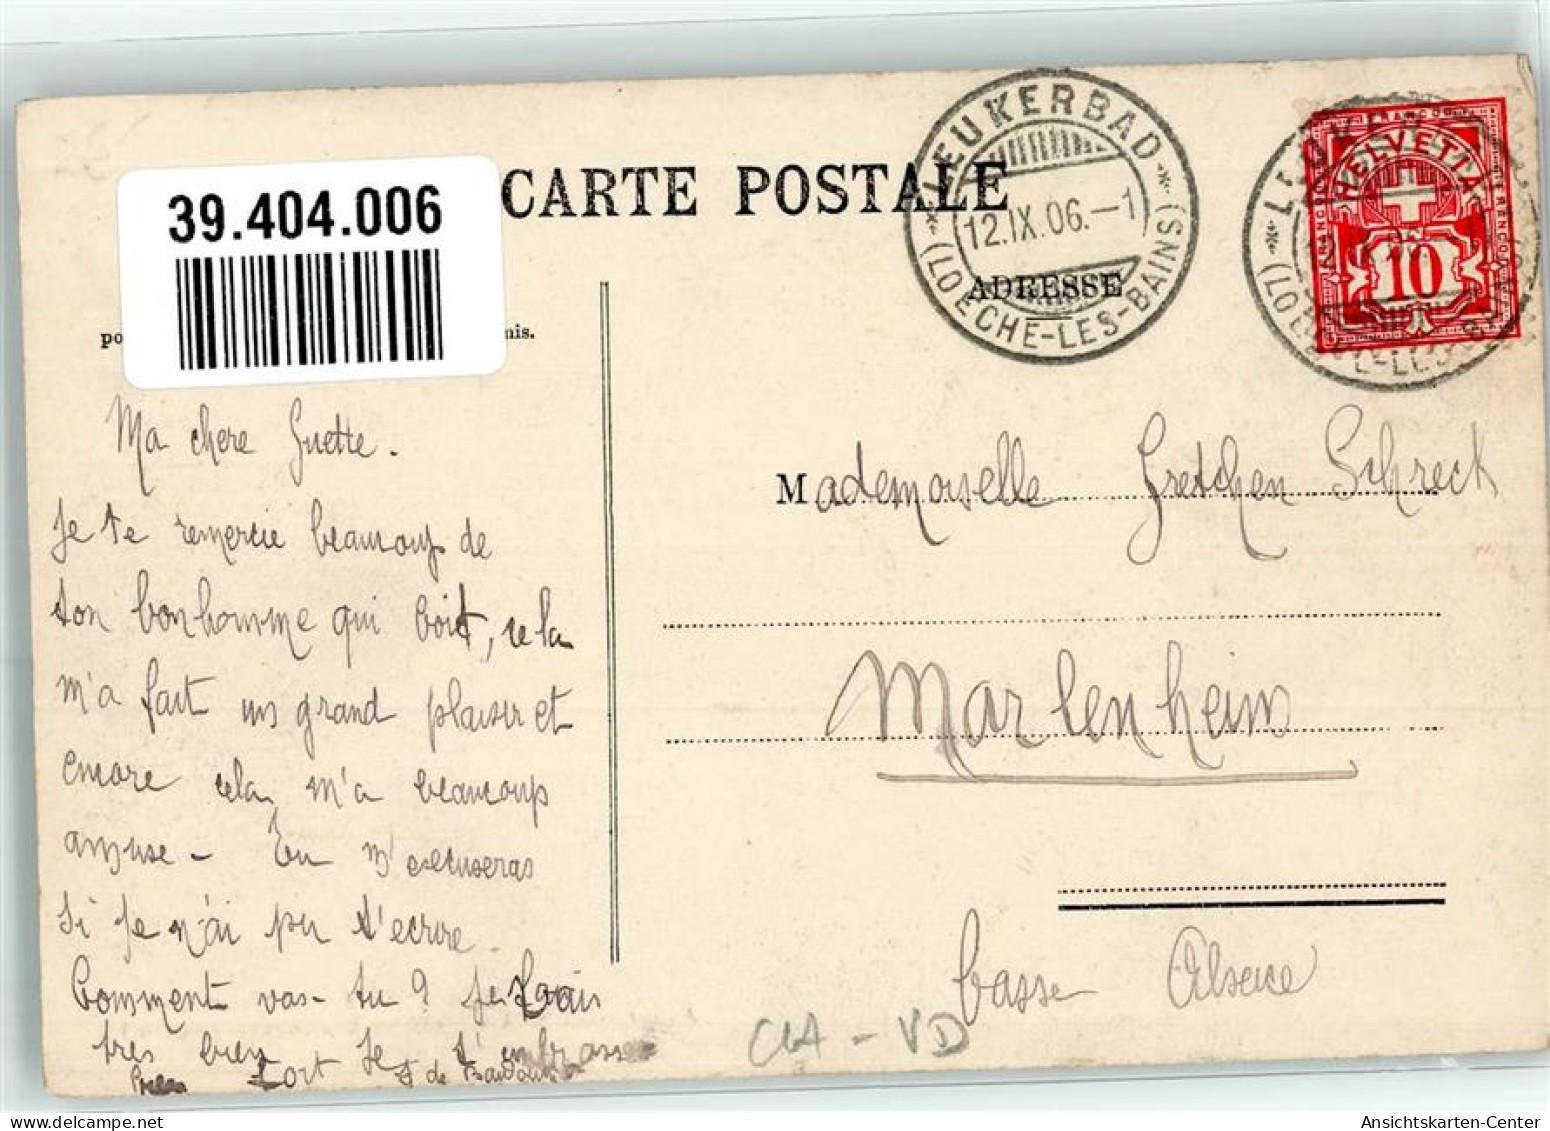 39.404.006
CARTE POSTALE
LEUKERBAD
12.IX.06.–1
(LOECHE-LES-BAINS)
HELVETIA
FRANCO
10
ADRESSE
po
nis.
Ma chere Guette.
Je te remercie beaucoup de
ton bonhomme qui boit, cela
m'a fait un grand plaisir et
encore cela m'a beaucoup
amuse – Tu m'excuseras
si je n'ai pu t'ecrire.
Comment vas-tu ? Je
tres bien Je t'embrasse
fort
Mademoiselle Gretchen Schreck
Marlenheim
basse Alsace
CLA - VD
Ansichtskarten-Center